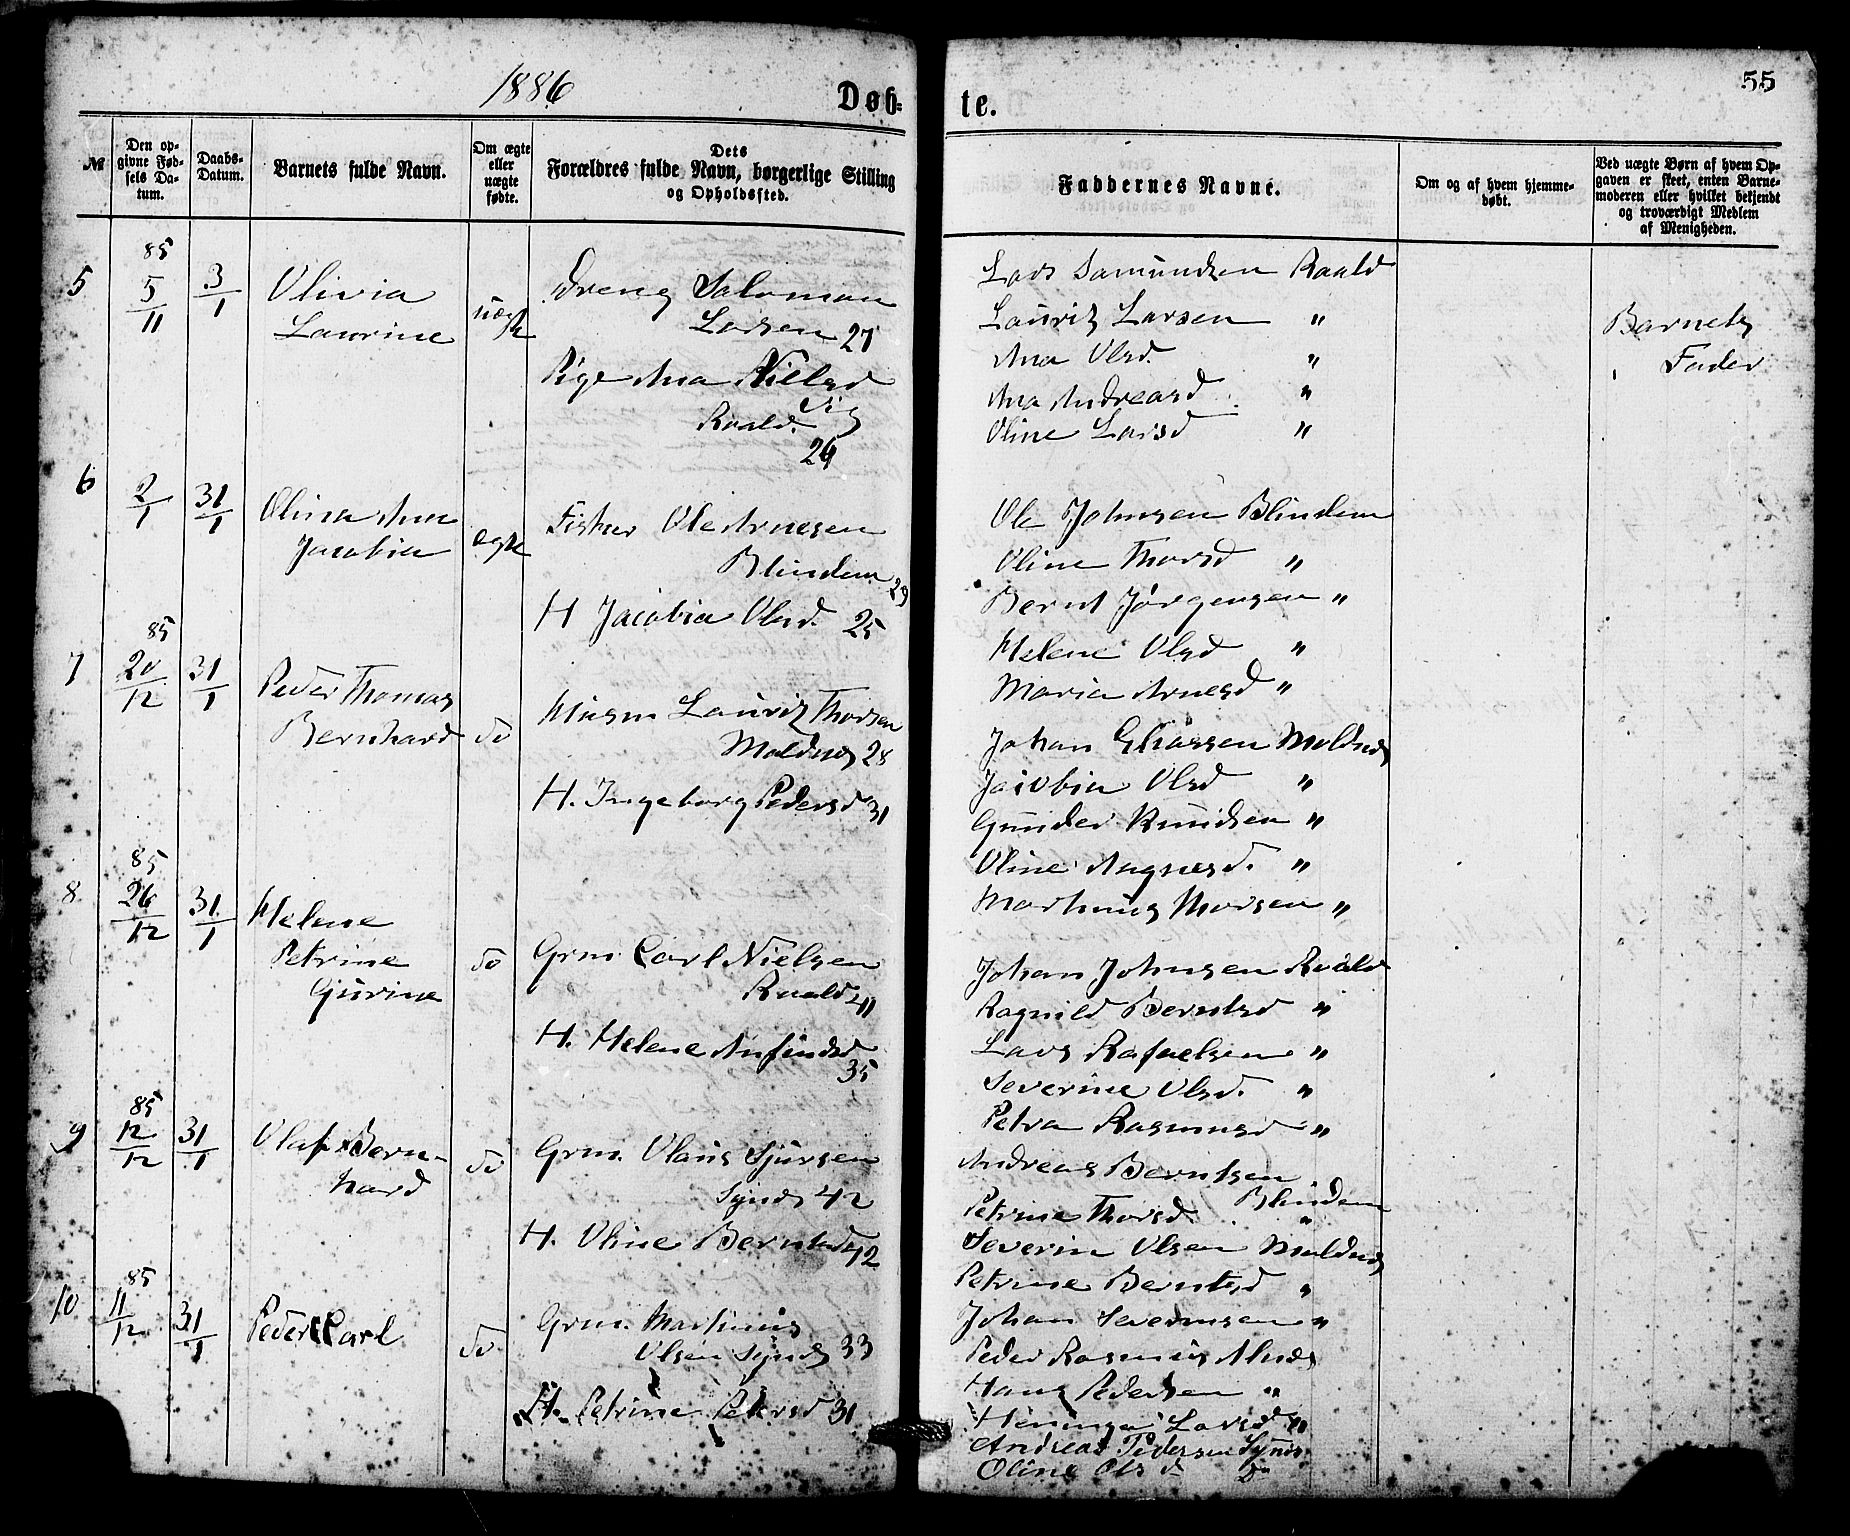 1886
Døb-
te.
55
№
Den op-
givne Fød-
sels Da-
tum.
Daabs-
Datum.
Barnets fulde Navn.
Om ægte
eller
uægte
fødte.
Dets
Forældres fulde Navn, borgerlige Stilling
og Opholdssted.
Faddernes Navne.
Om og af hvem hjemme-
døbt.
Ved uægte Børn af hvem Op-
gaven er skeet, enten Barne-
moderen eller hvilket bekjendt
og troværdigt Medlem
af Menigheden.
5
85
5/11
3/1
Olivia
Laurine
uægte
Dreng Salomon
Larsen 27
Pige Ana Nielsd
Vig
Roald.
Lars Samundsen Roald
Lauritz Larsen "
Ana Olsd. "
Ana Andreasd "
Oline Larsd "
Barnets
Fader
6
2/1
31/1
Olina Ana
Jacobia
ægte
Fisker Ole Arnesen
Blindem 29
H Jacobia Olsd. 25
Ole Johnsen Blindem
Oline Thorsd "
Bernt Jørgensen "
Helene Olsd "
Maria Arnesd "
7
85
20/12
31/1
Peder Thomas
Bernhard
do
Husm Lauritz Thorsen
Moldnes 28
H. Ingeborg Pedersd 31
Johan Eliassen Moldnes
Jacobia Olsd "
Gunder Knudsen "
Oline "
Martinus Thorsen "
8
85
26/12
31/1
Helene
Petrine
Gurine
do
Grm Carl Nielsen
Roald 41
H. Helene Anfindsd
35
Johan Johnsen Roald
Ragnild Berntsd "
Lars Rafaelsen "
Severine Olsd. "
Petra Rasmusd "
9
85
12/12
31/1
Olaf Bern-
hard
do
Grm. Olaus Sjursen
Synes 42
H. Oline Berntsd 42
Andreas Berntsen
Blindem
Petrine Thorsd. "
Severin Olsen Moldnes
Petrine Berntsd "
Johan Severinsen "
10
85
11/12
31/1
Peder Carl
do
Grm. Martinus
Olsen Synes 33
H. Petrine Petersd 31
Peder Rasmus Alnes
Hans Pedersen "
Larsd "
Andreas Pedersen Synes
Oline Olsd Do